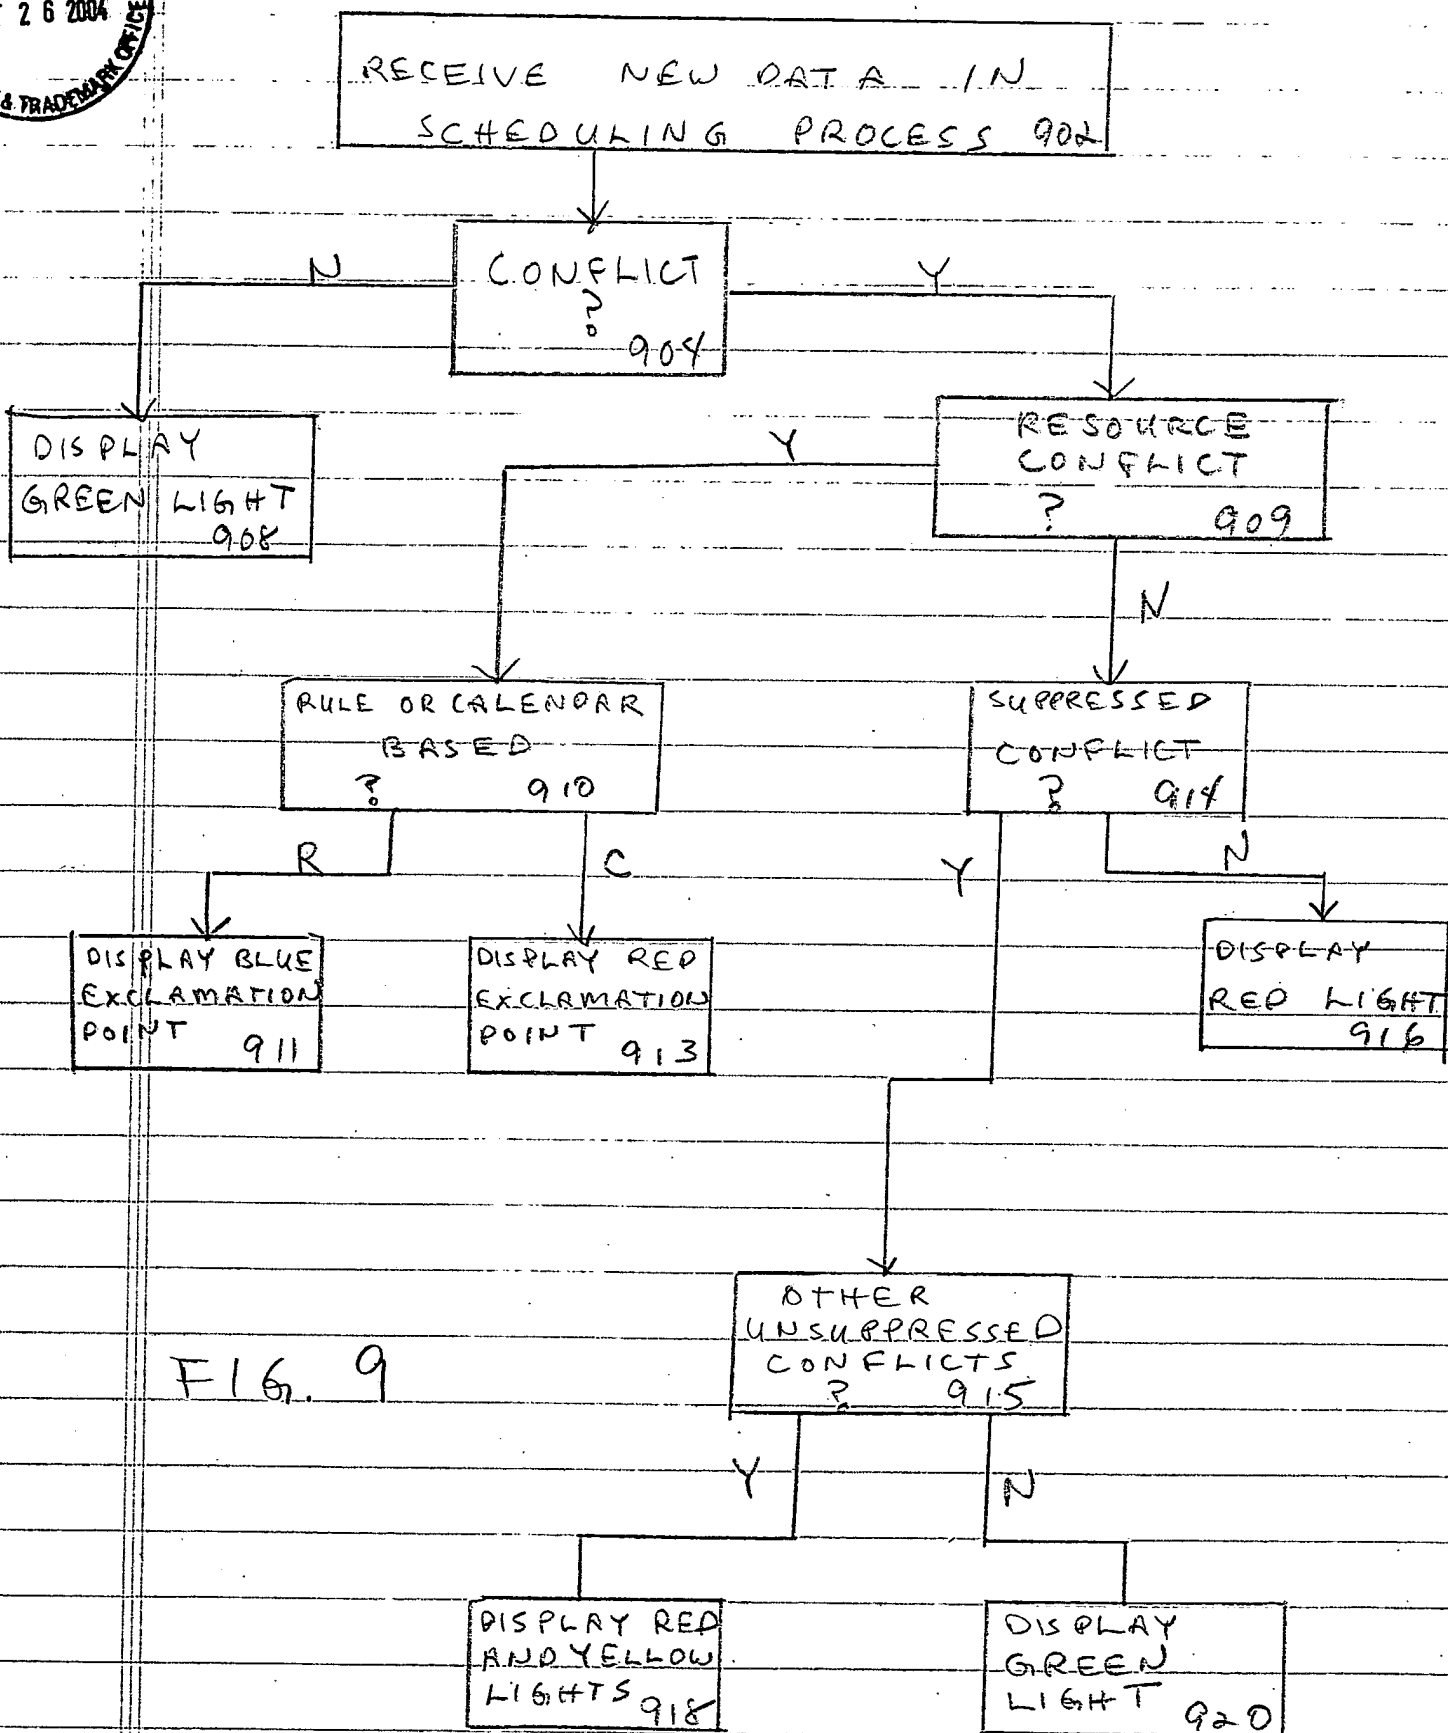 2 6 2004
& TRADEMARK OFFICE
RECEIVE NEW DATA IN
SCHEDULING PROCESS 902
N
CONFLICT
?
904
Y
DISPLAY
GREEN LIGHT
908
Y
RESOURCE
CONFLICT
? 909
N
RULE OR CALENDAR
BASED
? 910
SUPPRESSED
CONFLICT
? 914
R
C
Y
N
DISPLAY BLUE
EXCLAMATION
POINT 911
DISPLAY RED
EXCLAMATION
POINT 913
DISPLAY
RED LIGHT
916
OTHER
UNSUPPRESSED
CONFLICTS
? 915
FIG. 9
Y
N
DISPLAY RED
AND YELLOW
LIGHTS 918
DISPLAY
GREEN
LIGHT 920